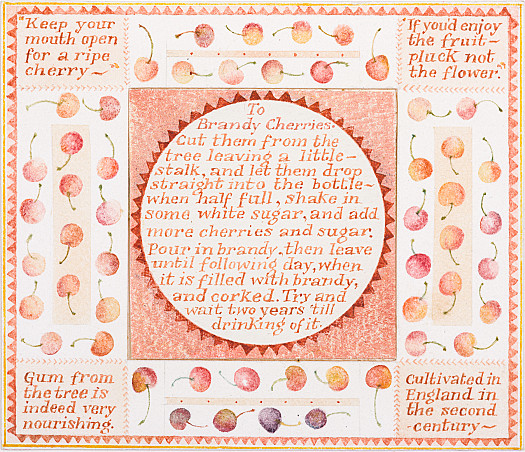 "Keep your
mouth open
for a ripe
cherry~"
"If you'd enjoy
the fruit~
pluck not
the flower."
To
Brandy Cherries.
Cut them from the
tree leaving a little~
stalk, and let them drop
straight into the bottle~
when half full, shake in
some white sugar, and add
more cherries and sugar.
Pour in brandy. then leave
until following day, when
it is filled with brandy,
and corked. Try and
wait two years 'till
drinking of it.
Gum from
the tree is
indeed very
nourishing.
Cultivated in
England in
the second
century~